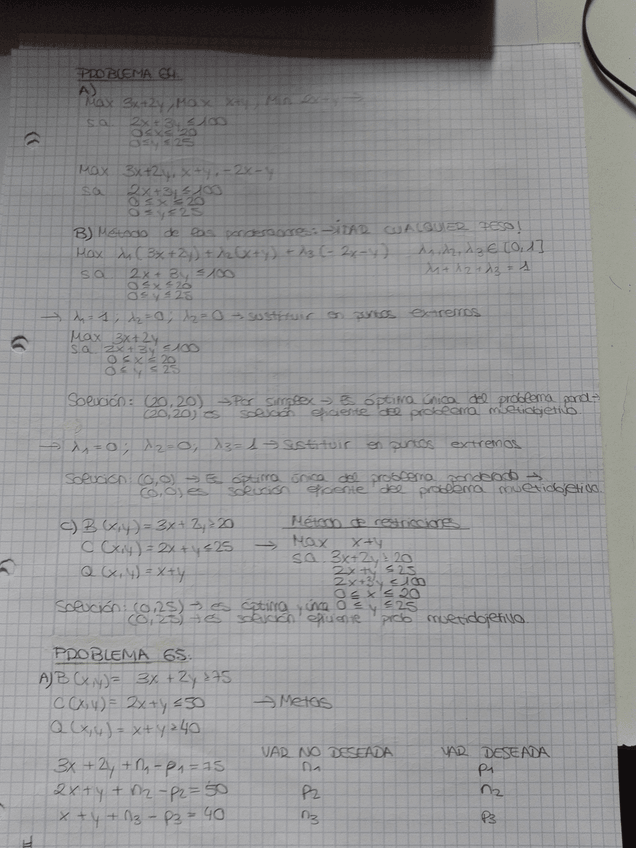 PROBLEMA 64.
A)
Max 3x+2y, Max x+y, Min 2x+y
s.a 2x+3y≤100
0≤x≤20
0≤y≤25
Max 3x+2y, x+y, -2x-y
s.a 2x+3y≤100
0≤x≤20
0≤y≤25
B) Método de las ponderaciones: → CUALQUIER PESO!
Max λ1(3x+2y)+λ2(x+y)+λ3(-2x-y) λ1,λ2,λ3∈[0,1]
s.a 2x+3y≤100 λ1+λ2+λ3=1
0≤x≤20
0≤y≤25
→ λ1=1; λ2=0; λ2=0 → sustituir en puntos extremos
Max 3x+2y
s.a 2x+3y≤100
0≤x≤20
0≤y≤25
Solución: (20,20) → Por simplex → Es óptima única del problema pond→
(20,20) es solución eficiente del problema multiobjetivo
→ λ1=0; λ2=0; λ3=1 → sustituir en puntos extremos
Solución: (0,0) → Es óptima única del problema ponderado →
(0,0) es solución eficiente del problema multiobjetivo.
C) B(x,y)=3x+2y≥20 Método de restricciones
C(x,y)=2x+y≤25 → Max x+y
s.a 3x+2y≥20
Q(x,y)=x+y 2x+y≤25
2x+3y≤100
0≤x≤20
Solución: (0,25) → es óptima única 0≤y≤25
(0,25) → es solución eficiente prob multiobjetivo.
PROBLEMA 65.
A) B(x,y)= 3x+2y≥75
C(x,y)= 2x+y≤50 → Metas
Q(x,y)=x+y≥40
VAR NO DESEADA VAR DESEADA
3x+2y+n1-p1=75 n1 p1
2x+y+n2-p2=50 p2 n2
x+y+n3-p3=40 n3 p3